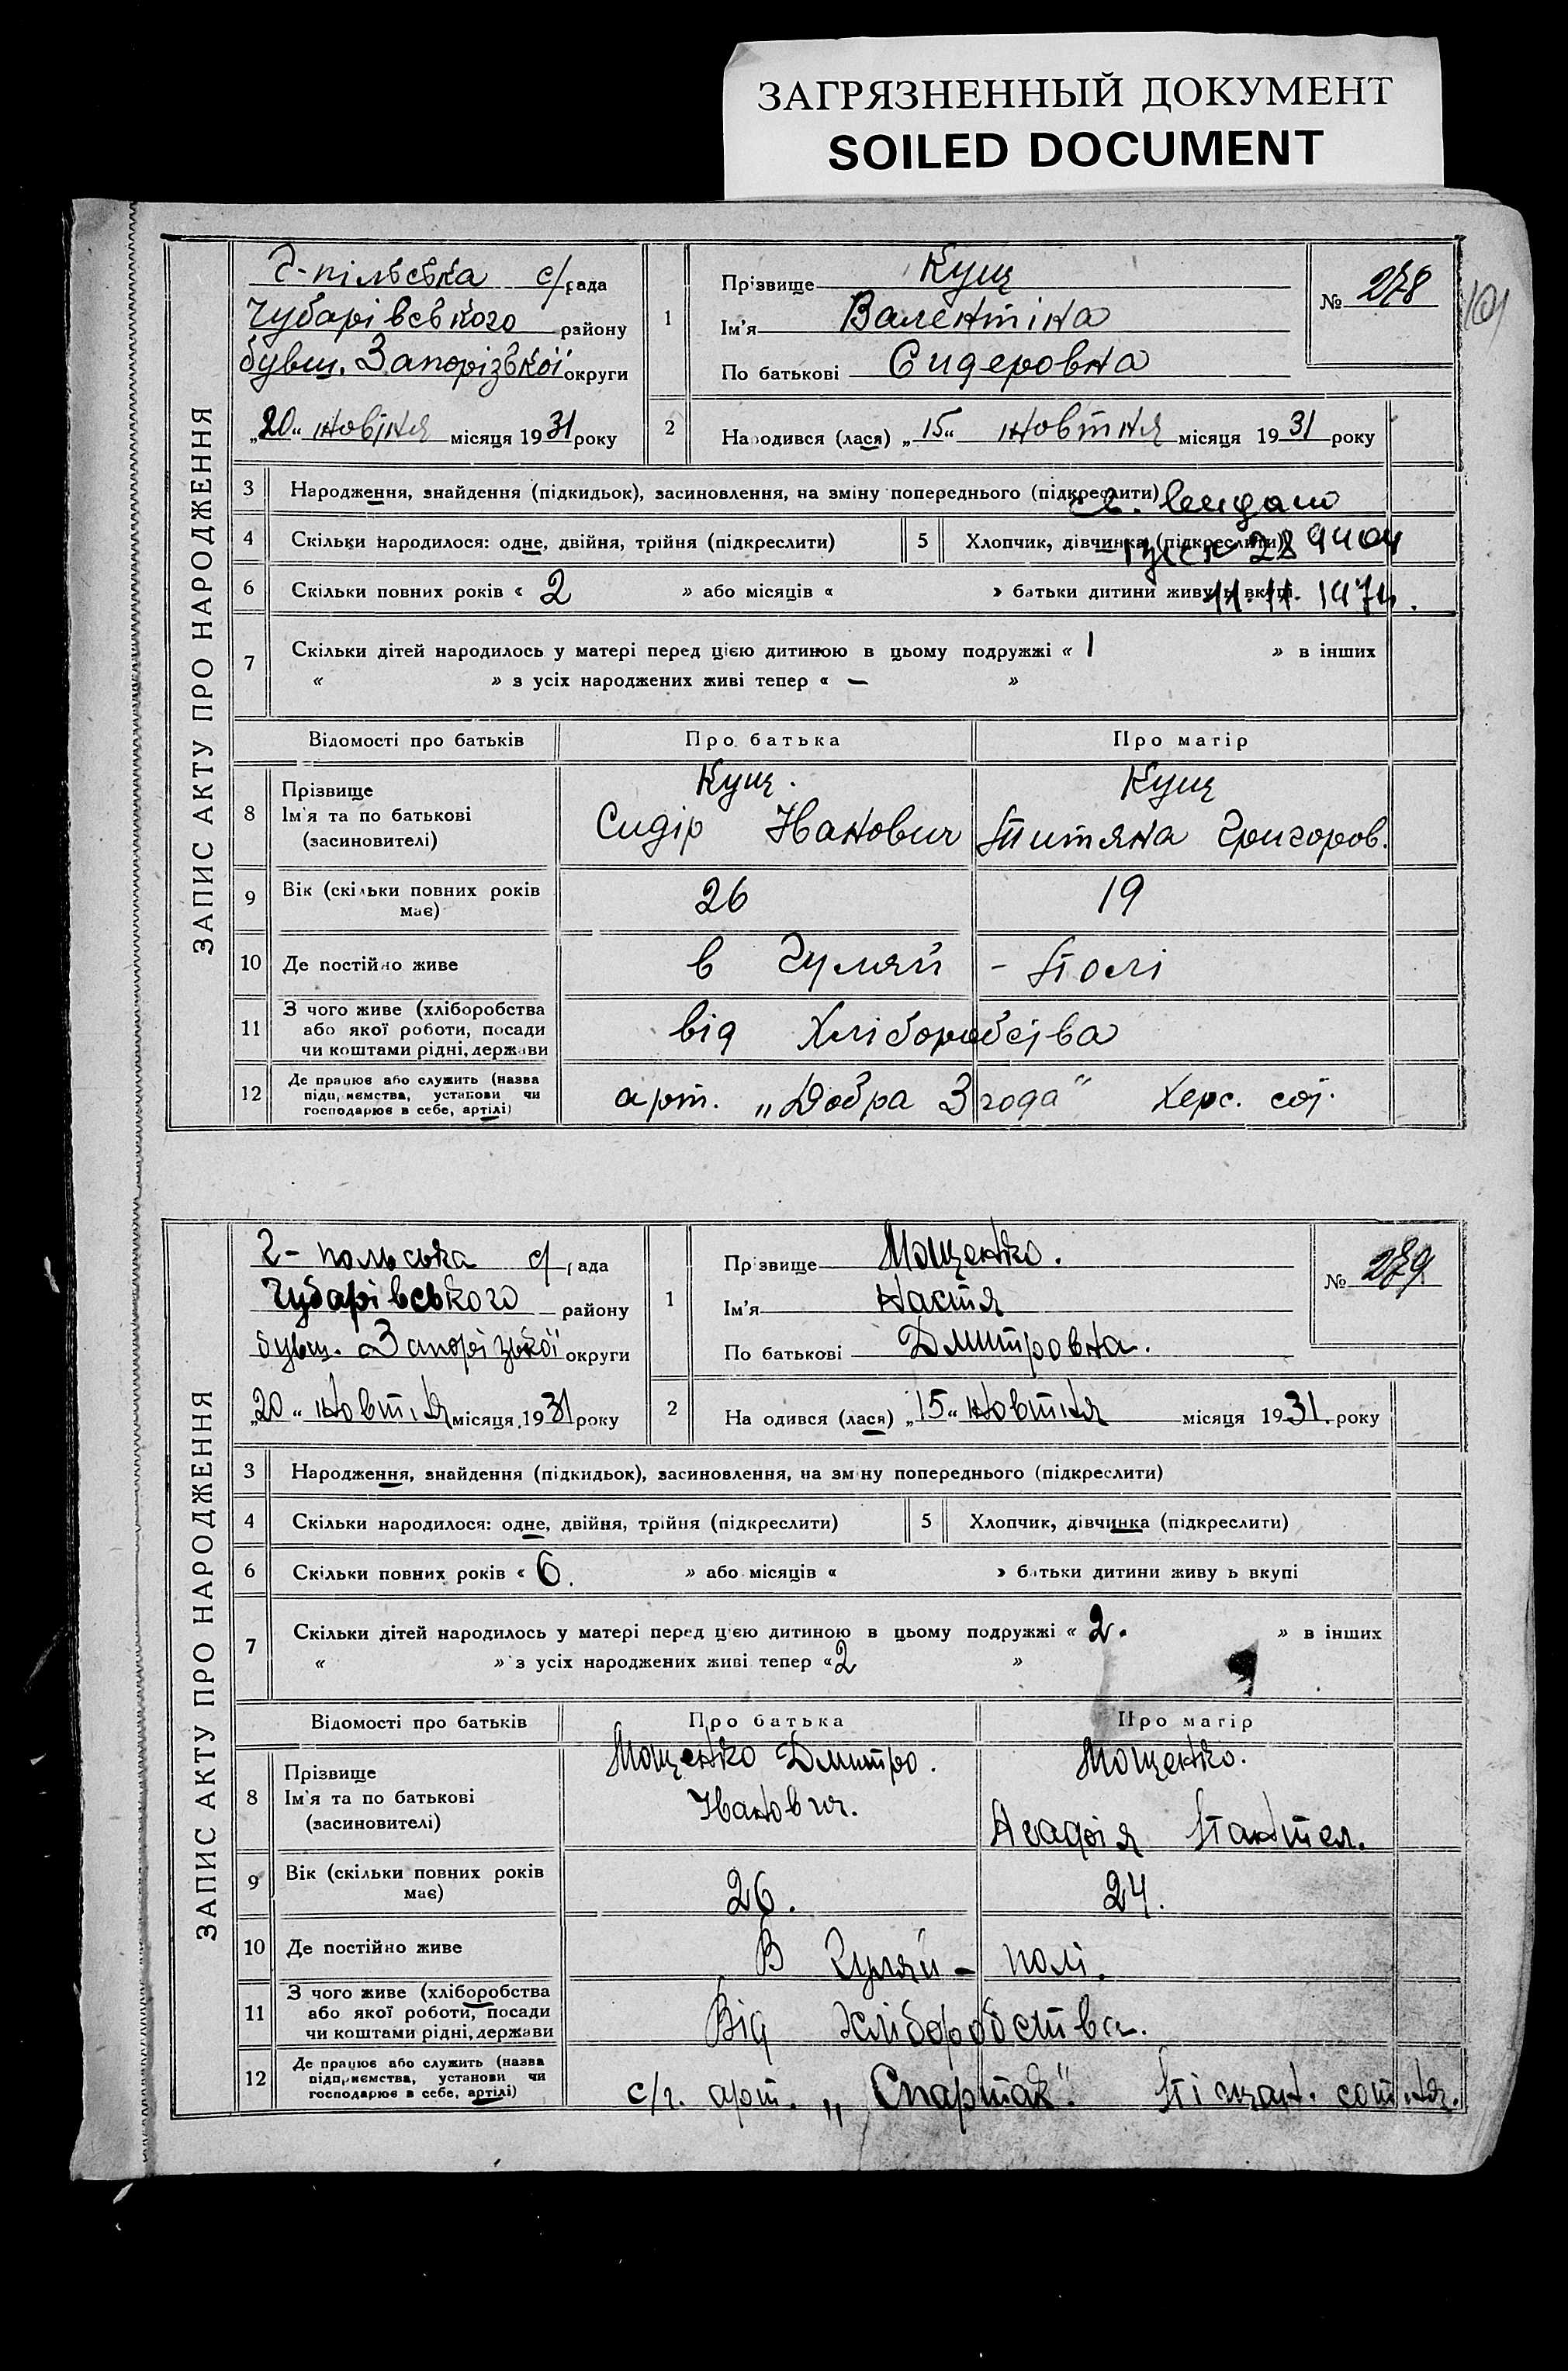 ЗАГРЯЗНЕННЫЙ ДОКУМЕНТ
SOILED DOCUMENT
ЗАПИС АКТУ ПРО НАРОДЖЕННЯ
Г-пільська с/рада
Чубарівського району
бувш. Запорізької округи
„20“ жовтня місяця 1931 року
1
Прізвище Кущ
Ім'я Валентіна
По батькові Сидеровна
№ 278
101
2
Народився (лася) „15“ жовтня місяця 1931 року
3 Народження, знайдення (підкидьок), засиновлення, на зміну попереднього (підкреслити)
св. видано
4 Скільки народилося: одне, двійня, трійня (підкреслити)
5 Хлопчик, дівчинка (підкреслити)
289404
6 Скільки повних років « 2 » або місяців « » батьки дитини живуть вкупі
11.11.1974.
7 Скільки дітей народилось у матері перед цією дитиною в цьому подружжі « 1 » в інших
« » з усіх народжених живі тепер « — »
Відомості про батьків Про батька Про матір
8 Прізвище Кущ. Кущ
Ім'я та по батькові Сидір Іванович Титяна Григоров.
(засиновителі)
9 Вік (скільки повних років має) 26 19
10 Де постійно живе в Гуляй - Полі
11 З чого живе (хліборобства
або якої роботи, посади
чи коштами рідні, держави
від Хліборобства
12 Де працює або служить (назва
підприємства, установи чи
господарює в себе, артілі)
арт. „Добра Згода“ Херс. сот.
ЗАПИС АКТУ ПРО НАРОДЖЕННЯ
Г-польська с/рада
Чубарівського району
бувш. Запорізької округи
„20“ жовтня місяця 1931 року
1
Прізвище Мощенко.
Ім'я Настя
По батькові Дмитровна.
№ 279
2
Народився (лася) „15“ жовтня місяця 1931. року
3 Народження, знайдення (підкидьок), засиновлення, на зміну попереднього (підкреслити)
4 Скільки народилося: одне, двійня, трійня (підкреслити)
5 Хлопчик, дівчинка (підкреслити)
6 Скільки повних років « 6. » або місяців « » батьки дитини живуть вкупі
7 Скільки дітей народилось у матері перед цією дитиною в цьому подружжі « 2. » в інших
« » з усіх народжених живі тепер « 2 »
Відомості про батьків Про батька Про матір
8 Прізвище Мощенко Дмитро. Мощенко.
Ім'я та по батькові Іванович. Агафія Пантел.
(засиновителі)
9 Вік (скільки повних років має) 26. 24.
10 Де постійно живе В Гуляй - полі.
11 З чого живе (хліборобства
або якої роботи, посади
чи коштами рідні, держави
Від хліборобства.
12 Де працює або служить (назва
підприємства, установи чи
господарює в себе, артілі)
с/г. арт. „Спартак“. Піщан. сотня.